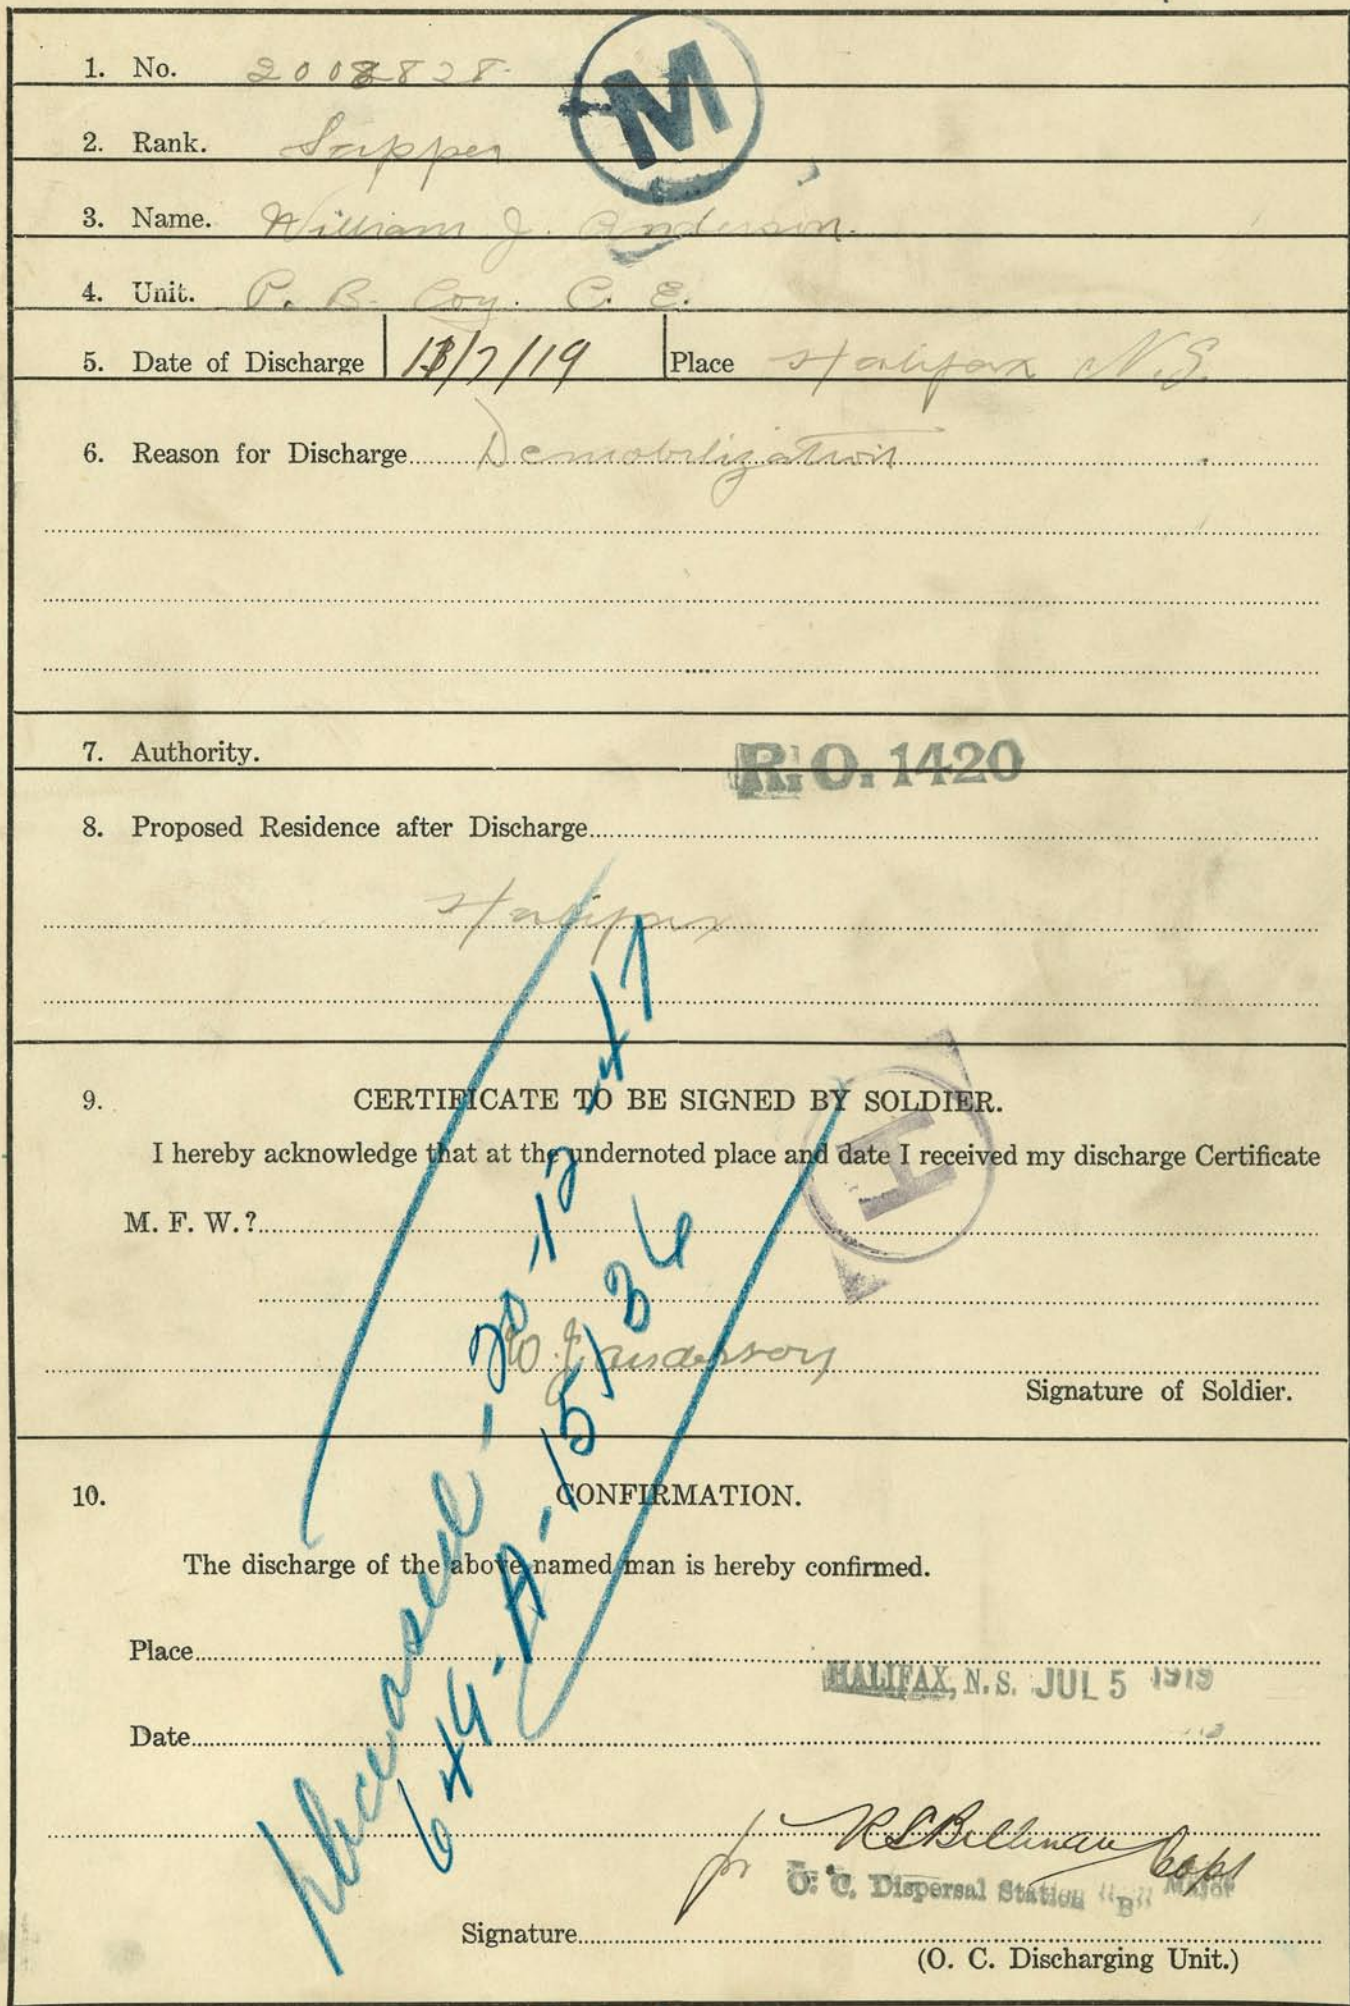 M
1. No. 2008828
2. Rank. Sapper
3. Name. William J. Anderson.
4. Unit. P. B. Coy. C. E.
5. Date of Discharge /7/19 Place Halifax N.S.
6. Reason for Discharge Demobilization
7. Authority. R.O. 1420
8. Proposed Residence after Discharge
Halifax
9. CERTIFICATE TO BE SIGNED BY SOLDIER.
I hereby acknowledge that at the undernoted place and date I received my discharge Certificate
H
M. F. W.?
W. J. Anderson
Signature of Soldier.
10. CONFIRMATION.
The discharge of the above named man is hereby confirmed.
Place
HALIFAX, N.S. JUL 5 1919
Date
for Capt
O. C. Dispersal Station "B" Major
Signature
(O. C. Discharging Unit.)
- 20-12-47
649-A-15136